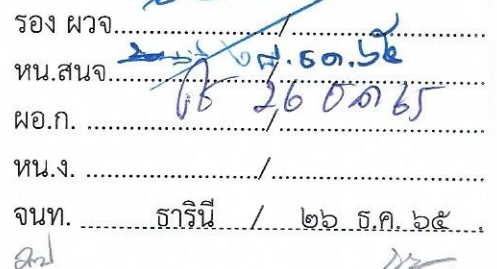 รอง ผวจ. /
หน.สนจ. ธ.ค. ๖๕
ผอ.ก. / 26 ธค 65
หน.ง. /
จนท. ธารินี / ๒๖ ธ.ค. ๖๕